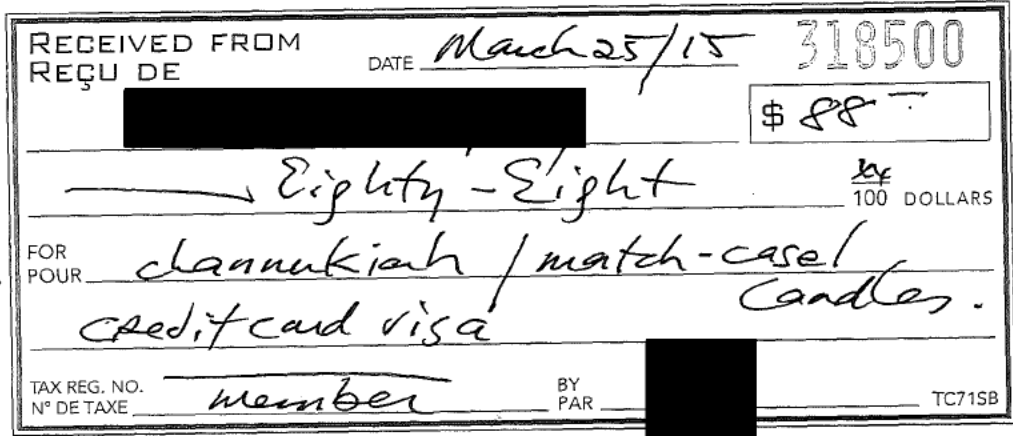 RECEIVED FROM
REÇU DE
DATE March 25/15
318500
$ 88 —
Eighty-Eight xx/100 DOLLARS
FOR
POUR channukiah / match-case/
candles.
credit card visa
TAX REG. NO.
N° DE TAXE member
BY
PAR
TC71SB